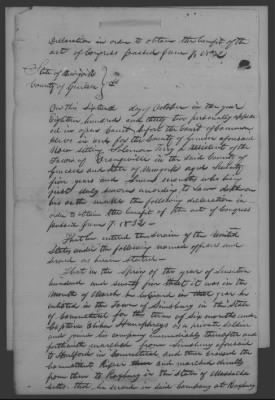 Declaration in order to obtain the benefit of the
act of Congress passed June 7, 1832
State of New York
County of Genesee } SS
On this sixteenth day of October in the year
Eighteen hundred and thirty two personally appea
red in open Court before the Court of Common
Pleas in and for the County of Genesee aforesaid
now sitting a resident of the
Town of Orangeville in the said County of
Genesee and State of New York aged Seventy
five years and Seven months who being
first duly sworn according to law doth on
his oath make the following declaration in
order to obtain the benefit of the act of Congress
passed June 7. 1832.
That he entered the service of the United
States under the following named officers and
served as herein stated.
That in the Spring of the year of Seventeen
hundred and seventy five that it was in the
month of March he
in the Town of Simsbury in the State
of Connecticut for the term of Six months under
Captain Humphreys as a private soldier
and join his company immediately thereafter and
forthwith marched from Simsbury aforesaid
to Hartford in Connecticut and then crossed the
Connecticut River then and marched directly
from there to Roxbury in the State of Massachu
setts that he remain in said Company at Roxbury